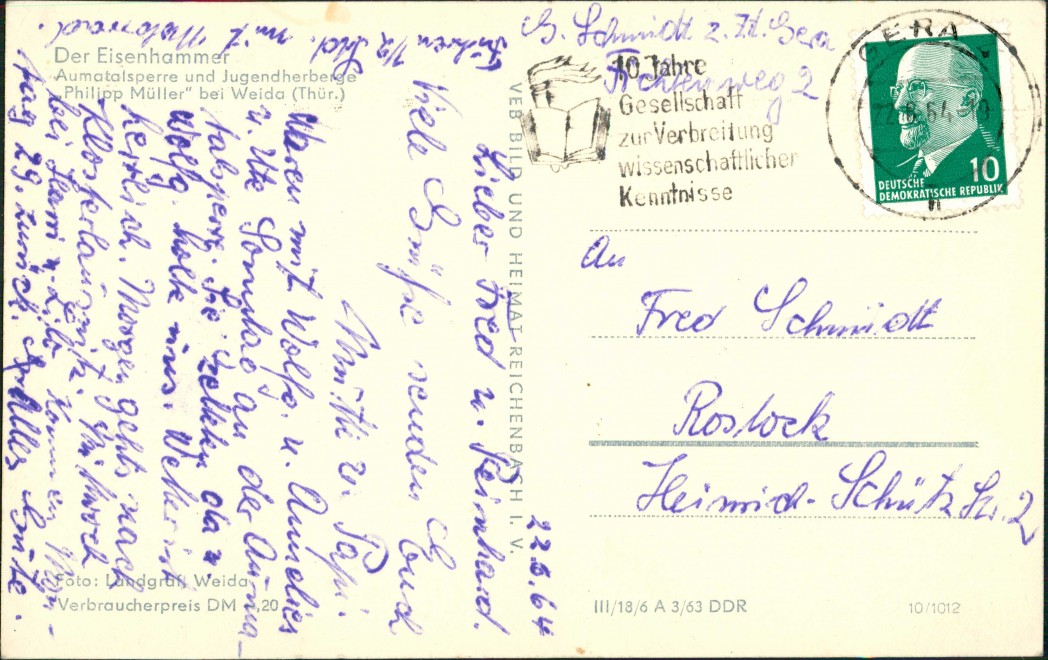 Der Eisenhammer
Aumatalsperre und Jugendherberge
„Philipp Müller" bei Weida (Thür.)
22.6.64
Lieber Fred u. Reinhard.
Viele Grüße senden Euch
Mutti u. Papi.
Waren mit Wolfg. u. Annelies
u. Ute Sonntag an der Auma-
talsperre. Sie zelten da u.
Wolfg. holte uns. Wetter ist
herrlich. Morgen gehts nach
Klosterlausnitz. Mittwoch
bei u. kommen Mon-
tag 29. zurück. Alles Gute.
Fuhren 1/2 Std. mit Motorrad.
Foto: Landgraf, Weida
Verbraucherpreis DM 0,20
VEB BILD UND HEIMAT REICHENBACH I. V.
G. Schmidt z. Zt. Gera
weg 2
10 Jahre
Gesellschaft
zur Verbreitung
wissenschaftlicher
Kenntnisse
GERA
22.6.64
DEUTSCHE
DEMOKRATISCHE REPUBLIK
10
An
Fred Schmidt
Rostock
Heinrich-Schütz Str. 2
III/18/6 A 3/63 DDR
10/1012